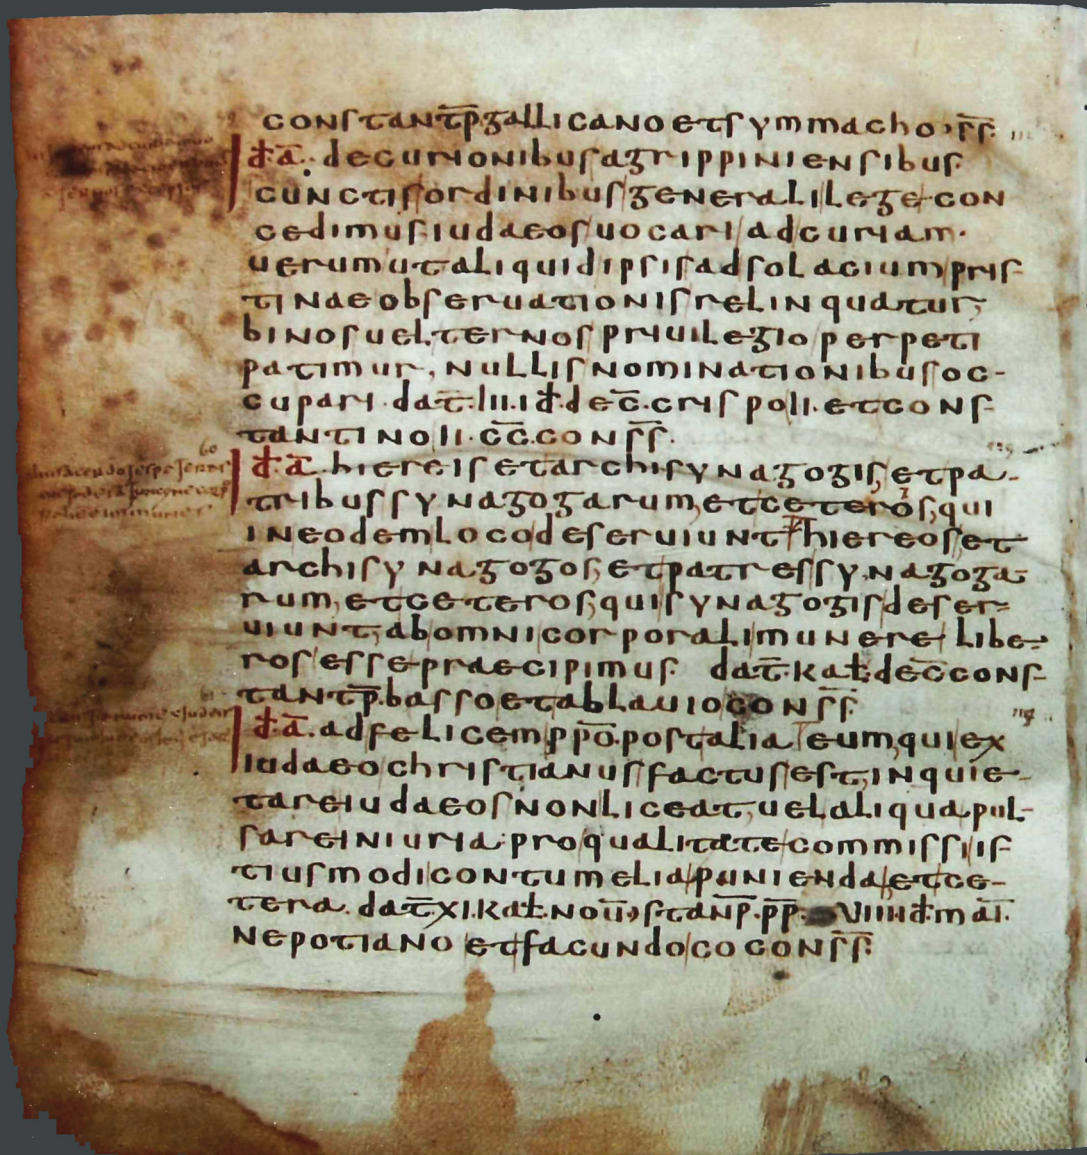 constant̄p̄. gallicano et symmacho. s̄s̄
Id̄ ā. decurionibus agrippiniensibus
cunctis ordinibus generali lege con
cedimus iudaeos uocari ad curiam.
uerum ut aliquid ipsis ad solacium pris
tinae obseruationis relinquatur,
binos uel ternos priuilegio perpeti
patimur, nullis nominationibus oc-
cupari. dat̄. III. id̄. dec̄. crispo II. et cons
tantino II. c̄c̄. cons̄s̄.
Id̄ ā. hiereis et archisynagogis, et pa-
tribus synagogarum, et ceteros, qui
in eodem loco deseruiunt hiereos, et
archisynagogos, et patres synagoga
rum, et ceteros, qui synagogis deser-
uiunt, ab omni corporali munere libe-
ros esse praecipimus dat̄. kal̄. dec̄ cons
tant̄p̄. basso et ablauio cons̄s̄.
Id̄ ā. ad felicem, p̄p̄ō. post alia eum, qui ex
iudaeo christianus factus est, inquie-
tare iudaeos non liceat, uel aliqua pul-
sare iniuria. pro qualitate commissi is
tiusmodi contumelia punienda, et ce-
tera. dat̄ XI. kal̄. nou̅, s̄tan̄p̄. p̄p̄. VIIII id̄. māī.
nepotiano et facundo co cons̄s̄.